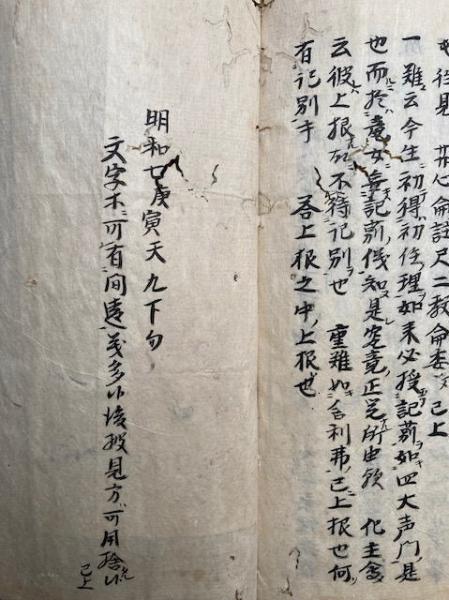 也往見 菩心論註尺二教論委 已上
一難云今生初得初住理如来必授記莂如四大声聞是
也而於竜女無記莂儀知是究竟正覚所由歟 化主会
云彼上根故不待記別也 重難如舎利弗已上根也何
有記別乎 答上根之中上根也
明和七庚寅天九下旬
文字不可有間違義多候後披見方可用捨候
已上